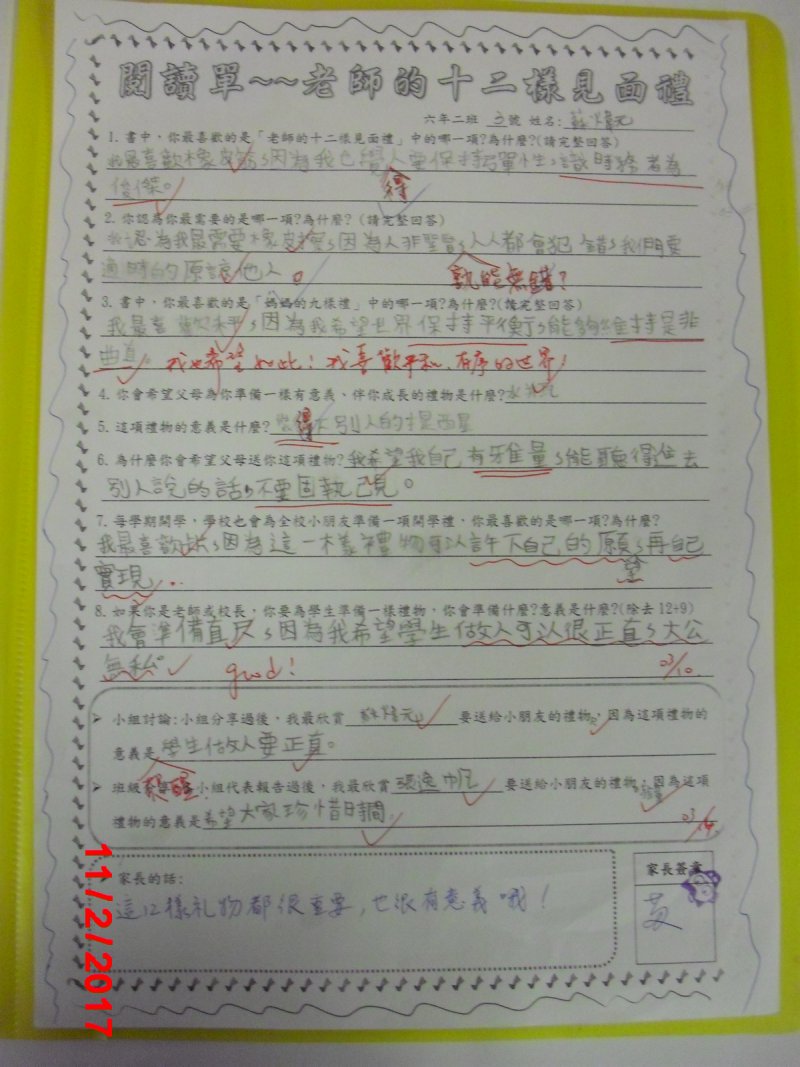 閱讀單~~老師的十二樣見面禮
六年二班 號 姓名:
1. 書中，你最喜歡的是「老師的十二樣見面禮」中的哪一項?為什麼?(請完整回答)
我最喜歡橡皮筋，因為我也覺得人要保持彈性，識時務者為
俊傑。
2. 你認為你最需要的是哪一項?為什麼? (請完整回答)
我認為我最需要橡皮擦，因為人非聖賢，人人都會犯錯，我們要
適時的原諒他人。 孰能無錯?
3. 書中，你最喜歡的是「媽媽的九樣禮」中的哪一項?為什麼?(請完整回答)
我最喜歡秤，因為我希望世界保持平衡，能夠維持是非
曲直。 我也希望如此! 我喜歡平和、有序的世界!
4. 你會希望父母為你準備一樣有意義、伴你成長的禮物是什麼?
5. 這項禮物的意義是什麼? 別人的
6. 為什麼你會希望父母送你這項禮物? 我希望我自己有雅量，能聽得進去
別人說的話，不要固執己見。
7. 每學期開學，學校也會為全校小朋友準備一項開學禮，你最喜歡的是哪一項?為什麼?
我最喜歡 因為這一樣禮物可以許下自己的願望，再自己
實現
8. 如果你是老師或校長，你要為學生準備一樣禮物，你會準備什麼?意義是什麼?(除去12+9)
我會準備直尺，因為我希望學生做人可以很正直，大公
無私。 good! 03/10
小組討論:小組分享過後，我最欣賞 要送給小朋友的禮物，因為這項禮物的
意義是學生做人要正直。
班級 小組代表報告過後，我最欣賞 張逸帆 要送給小朋友的禮物，因為這項
禮物的意義是希望大家珍惜時間
家長的話:
這12樣礼物都很重要，也很有意義哦!
家長簽章
11/2/2017